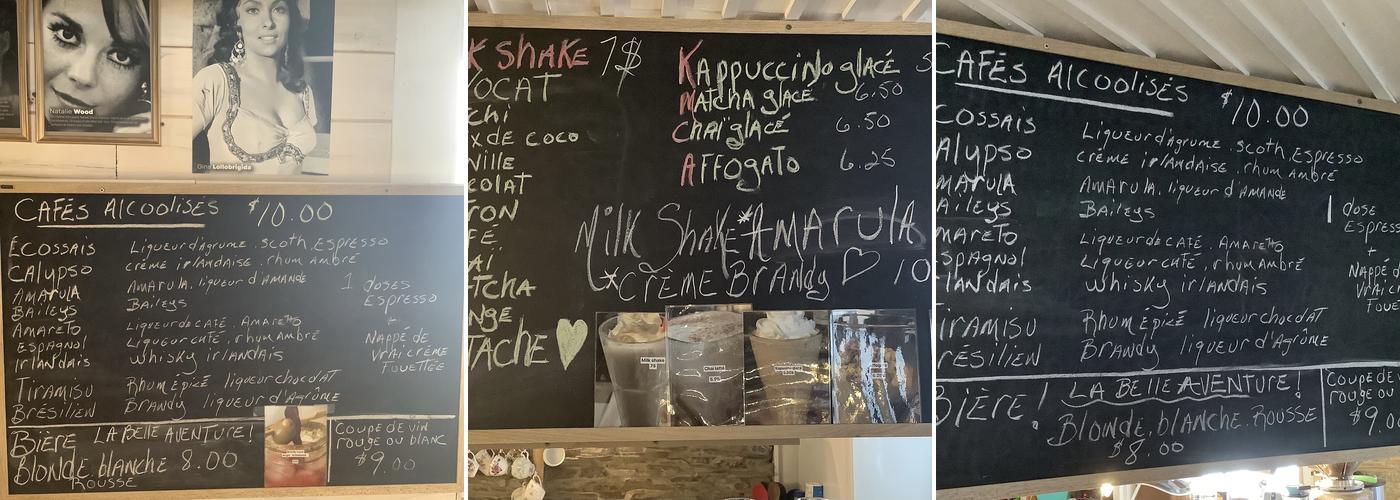 Natalie Wood
Gina Lollobrigida
CAFÉS AlcoolisÉS $10.00
ÉCOSSAIS Liqueur d'agrume . scoth . Espresso
CAlypso crème irlANdaise . rhum Ambré
AMArulA AMArulA . liqueur d'AMANDE
BAileys BAileys
AMAReTo Liqueur de CAFÉ . AmareTto
ESpAgNol Liqueur cAFÉ . rhum Ambré
IrlANdAis Whisky irlANdais
TirAMisu Rhum Épicé liqueur chocolAT
BrÉsilieN BrANdy liqueur d'Agrûme
1 doses
Espresso
+
NAppé de
VrAi crème
FouettÉe
BièRE LA BEllE AVENTURE!
BloNde blanche 8.00
Rousse
Coupe de viN
rouge ou blANC
$9.00
K SHAKE 7$
VOCAT
chi
x de coco
Nille
colAT
RON
FÉ
Aï
ATCHA
NgE
TACHE
KAppucciNo glAcÉ
MATchA glAcÉ 6.50
ChAï glAcÉ 6.50
AffogATo 6.25
Milk ShAKE *AMArulA
*CrÈME BrANdy 10
Milk shake
7$
Chai latté
CAFÉS AlcoolisÉS $10.00
COSSAIS Liqueur d'agrume . scoth . Espresso
Alypso crème irlANdaise . rhum Ambré
MARulA AMArulA . liqueur d'AMANDE
AilEys BAileys
MAReTo Liqueur de CAFÉ . AmareTto
SpAgNol Liqueur cAFÉ . rhum Ambré
rlANdAis Whisky irlANdais
irAMisu Rhum Épicé liqueur chocolAT
RÉsilieN BrANdy liqueur d'Agrûme
1 dose
Espress
+
NAppé
VrAi c
Foue
BièRE! LA BELLE AVENTURE!
Blonde . blanche . Rousse
$8.00
Coupe de v
rouge ou
$9.00